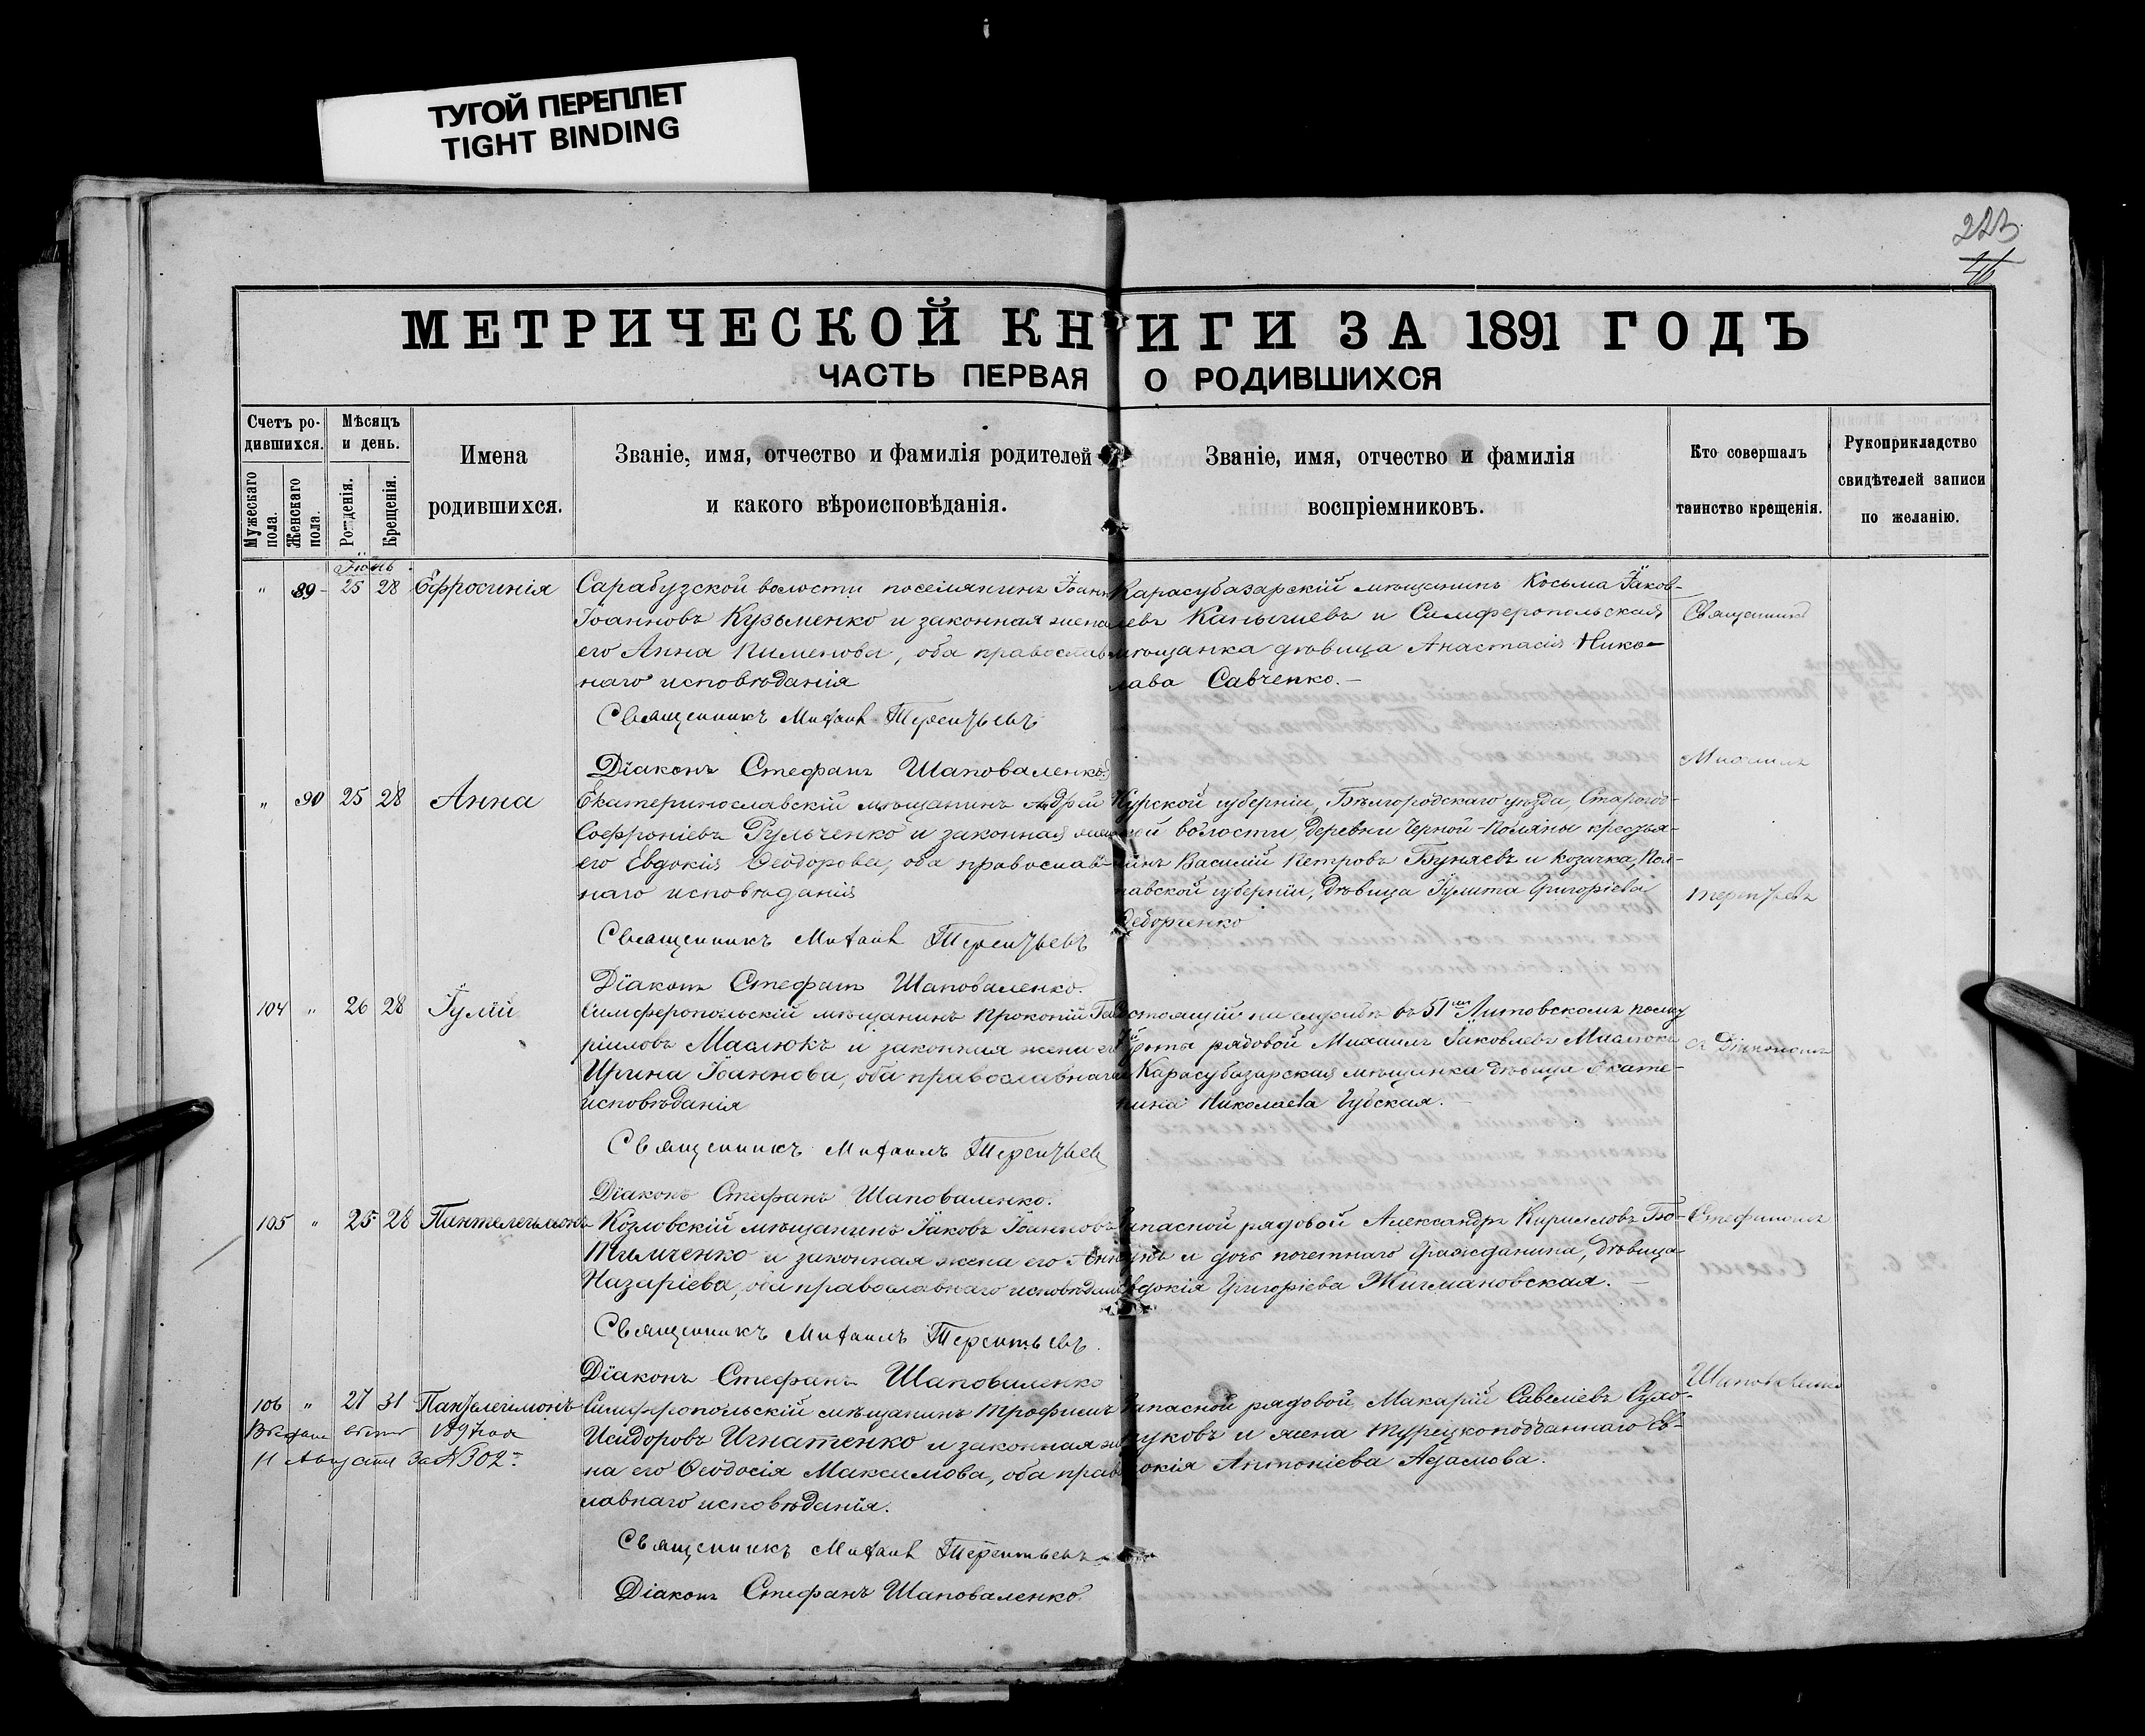 ТУГОЙ ПЕРЕПЛЕТ
TIGHT BINDING
223
МЕТРИЧЕСКОЙ КНИГИ ЗА 1891 ГОДЪ
ЧАСТЬ ПЕРВАЯ О РОДИВШИХСЯ
Счетъ ро-
дившихся.
Мужескаго пола.
Женскаго пола.
Мѣсяцъ
и день.
Рожденія.
Крещенія.
Имена
родившихся.
Званіе, имя, отчество и фамилія родителей
и какого вѣроисповѣданія.
Званіе, имя, отчество и фамилія
воспріемниковъ.
Кто совершалъ
таинство крещенія.
Рукоприкладство
свидѣтелей записи
по желанію.
" 89 25 28 Ефросинія
Сарабузской волости поселянинъ Іоаннъ
Іоанновъ Кузьменко и законная жена
его Анна Пименова, оба православ-
наго исповѣданія
Священникъ Михаилъ Терентьевъ
Діаконъ Стефанъ Шаповаленко
Карасубазарскій мѣщанинъ Косьма Іаков-
левъ и Симферопольская
мѣщанка дѣвица Анастасія Нико-
лаева Савченко.
" 90 25 28 Анна
Екатеринославскій мѣщанинъ Андрей
Софроніевъ Рульченко и законная жена
его Евдокія Ѳеодорова, оба православ-
наго исповѣданія
Священникъ Михаилъ Терентьевъ
Діаконъ Стефанъ Шаповаленко.
Курской губерніи, Бѣлгородскаго уѣзда, Старогод-
ской волости деревни Черной-Поляны крестья-
нинъ Василій Петровъ Буняевъ и козачка, Пол-
тавской губерніи, дѣвица Іулита Григоріева
Ѳедорченко
104 " 26 28 Іулій
Симферопольскій мѣщанинъ Прокопій Гав
ріиловъ Маслюкъ и законная жена его
Ирина Іоаннова, оба православнаго
исповѣданія
Священникъ Михаилъ Терентьевъ
Діаконъ Стефанъ Шаповаленко.
Состоящій на службѣ въ 51мъ Литовскомъ полку
рядовой Михаилъ Іаковлевъ Маслюкъ
и Карасубазарская мѣщанка дѣвица Екате-
рина Николаева Губская.
105 " 25 28 Пантелеимонъ
Козловскій мѣщанинъ Іаковъ Іоанновъ
Тимченко и законная жена его Анна
Назаріева, оба православнаго исповѣданія
Священникъ Михаилъ Терентьевъ.
Діаконъ Стефанъ Шаповаленко
Запасной рядовой Александръ Кирилловъ Бо-
и дочь почетнаго гражданина, дѣвица
Евдокія Григоріева Жигмановская.
106 " 27 31 Пантелеимонъ
Выдана 1897 года
11 Августа за № 302
Симферопольскій мѣщанинъ Трофимъ
Исидоровъ Игнатенко и законная же
на его Ѳеодосія Максимова, оба право
славнаго исповѣданія.
Священникъ Михаилъ Терентьевъ
Діаконъ Стефанъ Шаповаленко.
Запасной рядовой Макарій Савеліевъ Сухо-
руковъ и жена Турецкоподданнаго Ев-
докія Антоніева Адамова.
Священникъ
Михаилъ
Терентьевъ
съ Діакономъ
Стефаномъ
Шаповаленко